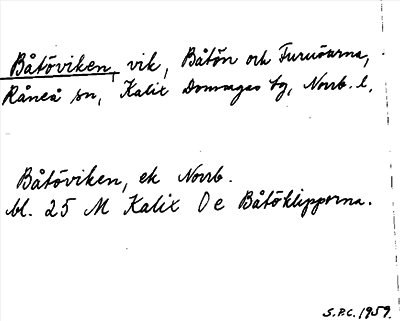 Båtöviken, vik, Båtön och Furuöarna,
Råneå sn, Kalix Domsagas tg, Norrb. l.
Båtöviken, ek Norrb.
bl. 25 M Kalix O e Båtöklipporna.
S.P.C. 1959.